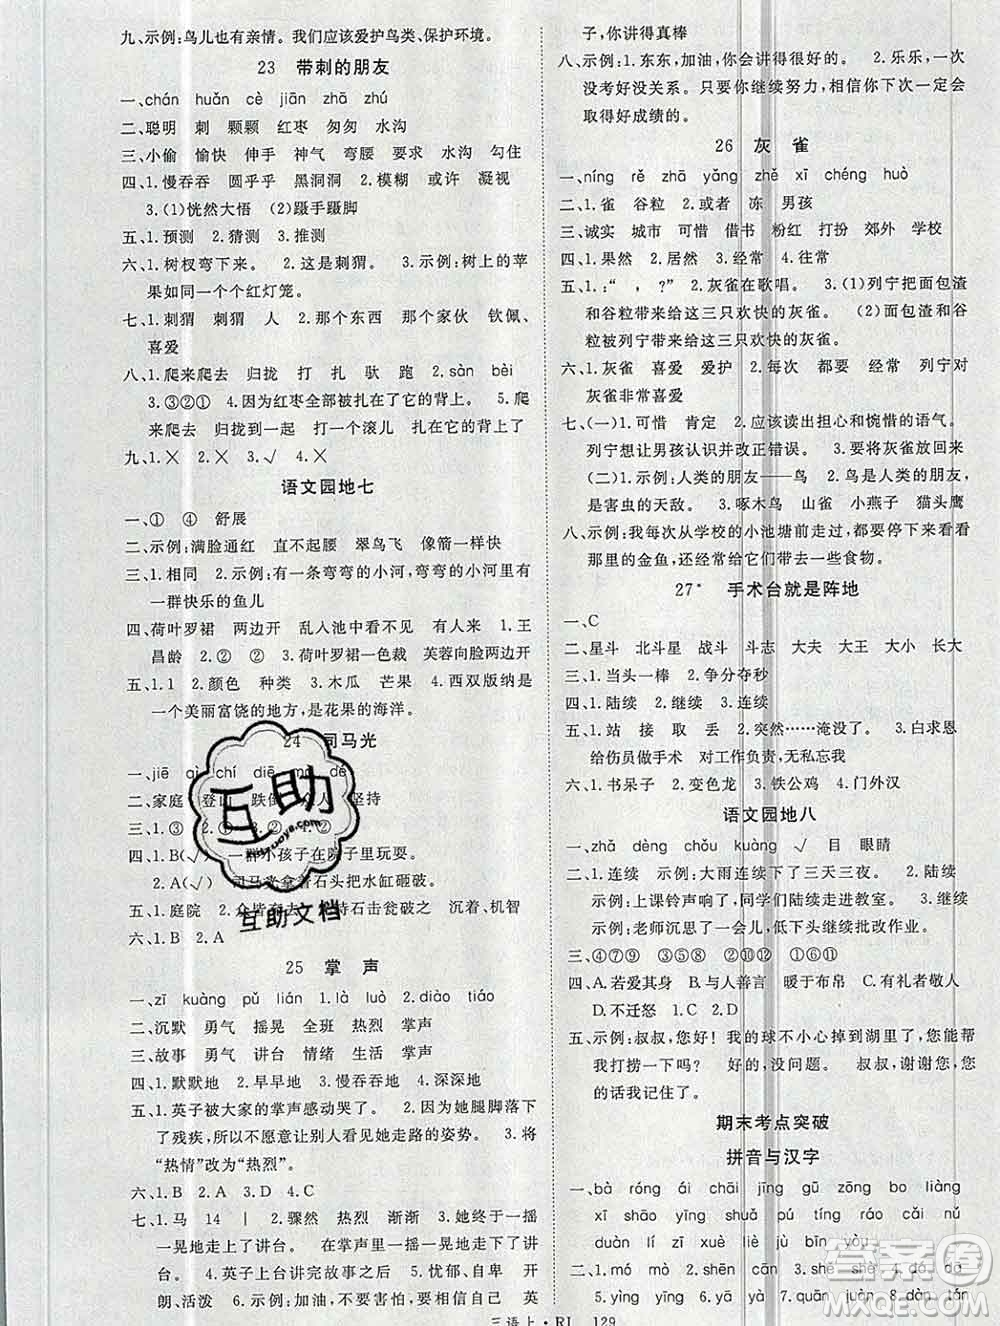 九、示例:鸟儿也有亲情。我们应该爱护鸟类、保护环境。
23 带刺的朋友
一、chán huǎn cè jiān zhā zhú
二、聪明 刺 颗颗 红枣 匆匆 水沟
三、小偷 愉快 伸手 神气 弯腰 要求 水沟 勾住
四、1.慢吞吞 圆乎乎 黑洞洞 2.模糊 或许 凝视
3.(1)恍然大悟 (2)蹑手蹑脚
五、1.预测 2.猜测 3.推测
六、1.树杈弯下来。 2.这是刺猬。 3.示例:树上的苹
果如同一个个红灯笼。
七、1.刺猬 刺猬 人 2.那个东西 那个家伙 钦佩、
喜爱
八、1.爬来爬去 归拢 打 扎 驮 跑 2.sàn bèi
3.③②① 4.因为红枣全部被扎在了它的背上。 5.爬
来爬去 归拢到一起 打一个滚儿 扎在了它的背上
九、1.× 2.× 3.√ 4.×
语文园地七
一、① ④ 舒展
二、示例:满脸通红 直不起腰 翠鸟飞 像箭一样快
三、1.相同 2.示例:有一条弯弯的小河,弯弯的小河里有
一群快乐的鱼儿
四、荷叶罗裙 两边开 乱入池中看不见 1.王
昌龄 2.② ② 3.荷叶罗裙一色裁 芙蓉向脸两边开
五、1.1 2.颜色 种类 3.木瓜 芒果 4.西双版纳是
一个美丽富饶的地方,是花果的海洋。
24 司马光
一、jiē chí diē dé
二、家庭 登山 跌倒 人 坚持
三、1.③ ② ①
四、1.B(√) 一群小孩子在院子里玩耍。
2.A(√) 司马光拿着石头把水缸砸破。
五、1.庭院 2.众皆弃去 持石击瓮破之 沉着、机智
六、1.B 2.A
25 掌 声
一、zī kuàng pǔ lián 1.là luò 2.diào tiáo
二、沉默 勇气 摇晃 全班 热烈 掌声
三、故事 勇气 讲台 情绪 生活 掌声
四、1.默默地 2.早早地 3.慢吞吞地 4.深深地
五、1.英子被大家的掌声感动哭了。 2.因为她腿脚落下
了残疾,所以她不愿意让别人看见她走路的姿势。 3.将
“热情”改为“热烈”。
六、1.B 2.A 3.D 4.C
七、1.马 14 丨 2.骤然 热烈 渐渐 3.她终于一摇
一晃地走上了讲台。 一摇
一晃地走下了讲台。 4.英子上台讲完故事之后 开
朗、活泼 6.示例:加油,不要忧郁、自卑 英
子,你讲得真棒
八、示例:1.东东,加油,你会讲得很好的。 2.乐乐,一次
没考好没关系。只要你继续努力,相信你下次一定会
取得好成绩的。
26 灰 雀
一、níng rě zhā yǎng zhě xī chéng huò
二、1.雀 谷粒 2.或者 冻 男孩
三、诚实 城市 可惜 借书 粉红 打扮 郊外 学校
四、1.果然 2.居然 3.经常 4.往常
五、1.:“ , ?” 2.灰雀在歌唱。 3.(1)列宁把面包渣
和谷粒带来给这三只欢快的灰雀。 (2)面包渣和谷
粒被列宁带来给这三只欢快的灰雀。
六、1.喜爱 爱护 2.每次 都要 经常 列宁对
灰雀非常喜爱
七、(一)1.可惜 肯定 2.应该读出担心和惋惜的语气。
列宁想让男孩认识并改正错误。 3.灰雀会飞回来。
(二)1.示例:人类的朋友——鸟 2.鸟是人类的朋友,
是害虫的天敌。 3.啄木鸟 山雀 小燕子 猫头鹰
八、示例:我每次从学校的小池塘前走过,都要停下来看看
那里的金鱼,还经常给它们带去一些食物。
27* 手术台就是阵地
一、C
二、星斗 北斗星 战斗 斗志 大夫 大王 大方
三、1.当头一棒 2.争分夺秒
四、1.陆续 2.继续 3.连续
五、1.站 接 取 丢 2.突然……淹没了。 3.白求恩
给伤员做手术 对工作负责,无私奉献
六、1.书呆子 2.变色龙 3.铁公鸡 4.门外汉
语文园地八
一、zhǎ dèng chǒu kuàng √ 目 眼睛
二、1.连续 示例:大雨连续下了三天三夜。 2.陆续
示例:上课铃声响了,同学们陆续走进教室。 3.继续
示例:老师沉思了一会儿,低下头继续批改作业。
三、④⑦⑨ ③⑤⑧ ②⑩⑫ ①⑥⑪
四、A.若爱其身 B.与人善言 暖于布帛 C.有礼者敬人
D.不迁怒 1.C 2.D
五、示例:叔叔,您好!我的球不小心掉到湖里了,您能帮
我打捞一下吗? 好的,没问题。 叔叔,谢谢您,您
的话我记住了。
期末考点突破
拼音与汉字
一、bà róng ái chāi jīng gū zōng bo liàng
xī shuāng yīng zhuā xiǎo ráo cāi nǔ
duàn lí zī shì wū jù bīn yòu
二、1.mó mò 2.shēn cān 3.shé shè
5.yìng yīng
三语上·RJ 129
互助
互助文档
答案圈
MXQE.COM